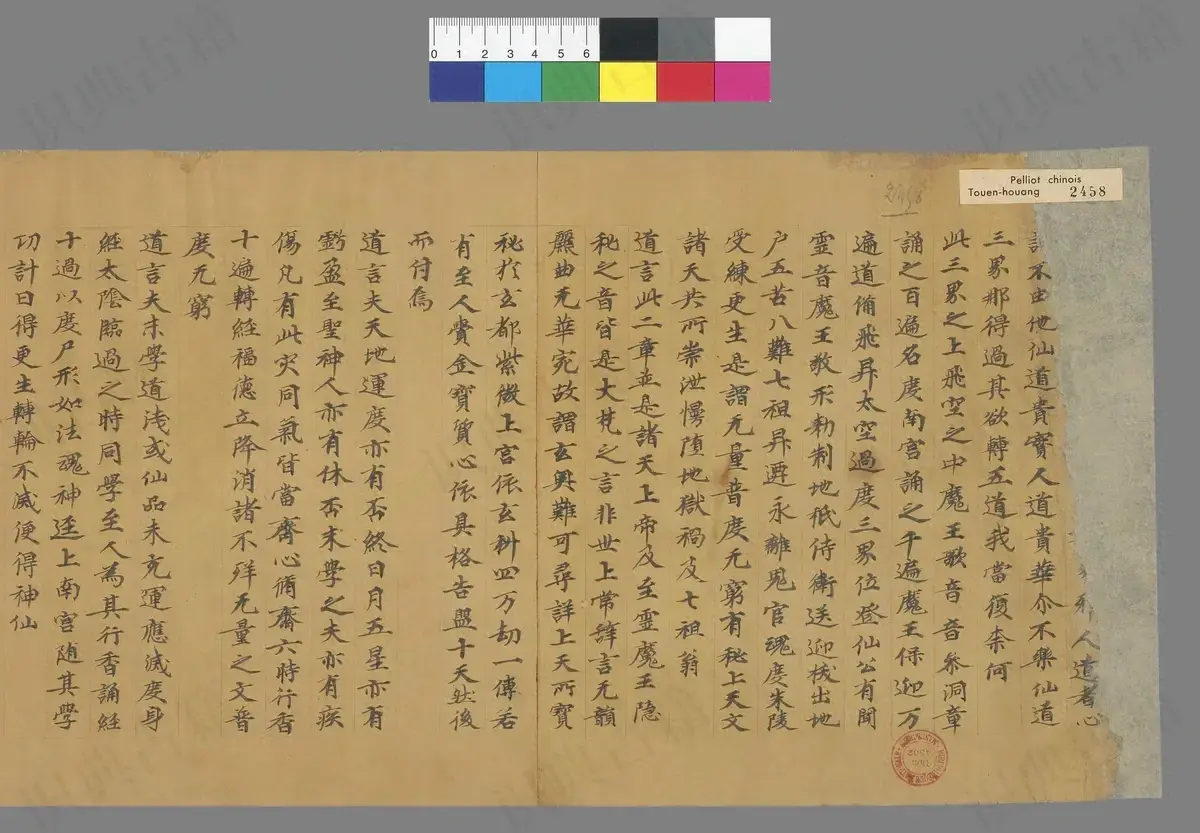 0 1 2 3 4 5 6
Pelliot chinois
Touen-houang 2458
2458
人道者心
不由他仙道貴實人道貴華尒不樂仙道
三界那得過其欲轉五道我當復柰何
此三界之上飛空之中魔王歌音音參洞章
誦之百遍名度南宫誦之千遍魔王保迎万
遍道俻飛昇太空過度三界位登仙公有聞
靈音魔王敬形勑制地祇侍衛送迎拔出地
户五苦八難七祖昇遷永離鬼官魂度朱陵
受練更生是謂无量普度无窮有秘上天文
諸天共所崇泄慢墮地獄禍及七祖翁
道言此二章並是諸天上帝及至靈魔王隐
秘之音皆是大梵之言非世上常辝言无韻
麗曲无華宛故謂玄奥難可尋詳上天所寶
秘於玄都紫微上宫依玄科四万劫一傳若
有至人賫金寶質心依具格告盟十天然後
而付焉
道言夫天地運度亦有否終日月五星亦有
虧盈至聖神人亦有休否末學之夫亦有疾
傷凡有此灾同氣皆當齊心脩齋六時行香
十遍轉經福德立降消諸不祥无量之文普
度无窮
道言夫末學道浅或仙品未充運應滅度身
經太陰臨過之時同學至人為其行香誦經
十過以度尸形如法魂神逕上南宫随其學
功計日得更生轉輪不滅便得神仙